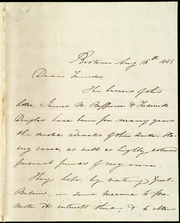 Boston Aug 15th 1845
Dear Friends
The bearers of this
letter James N. Buffum & Frederick
Douglass have been for many years
the devoted advocates of the Anti Sla
very cause, as well as highly esteemed
personal friends of my own.
They hope by visiting Great
Britain, in some measure to promo
te the interests of